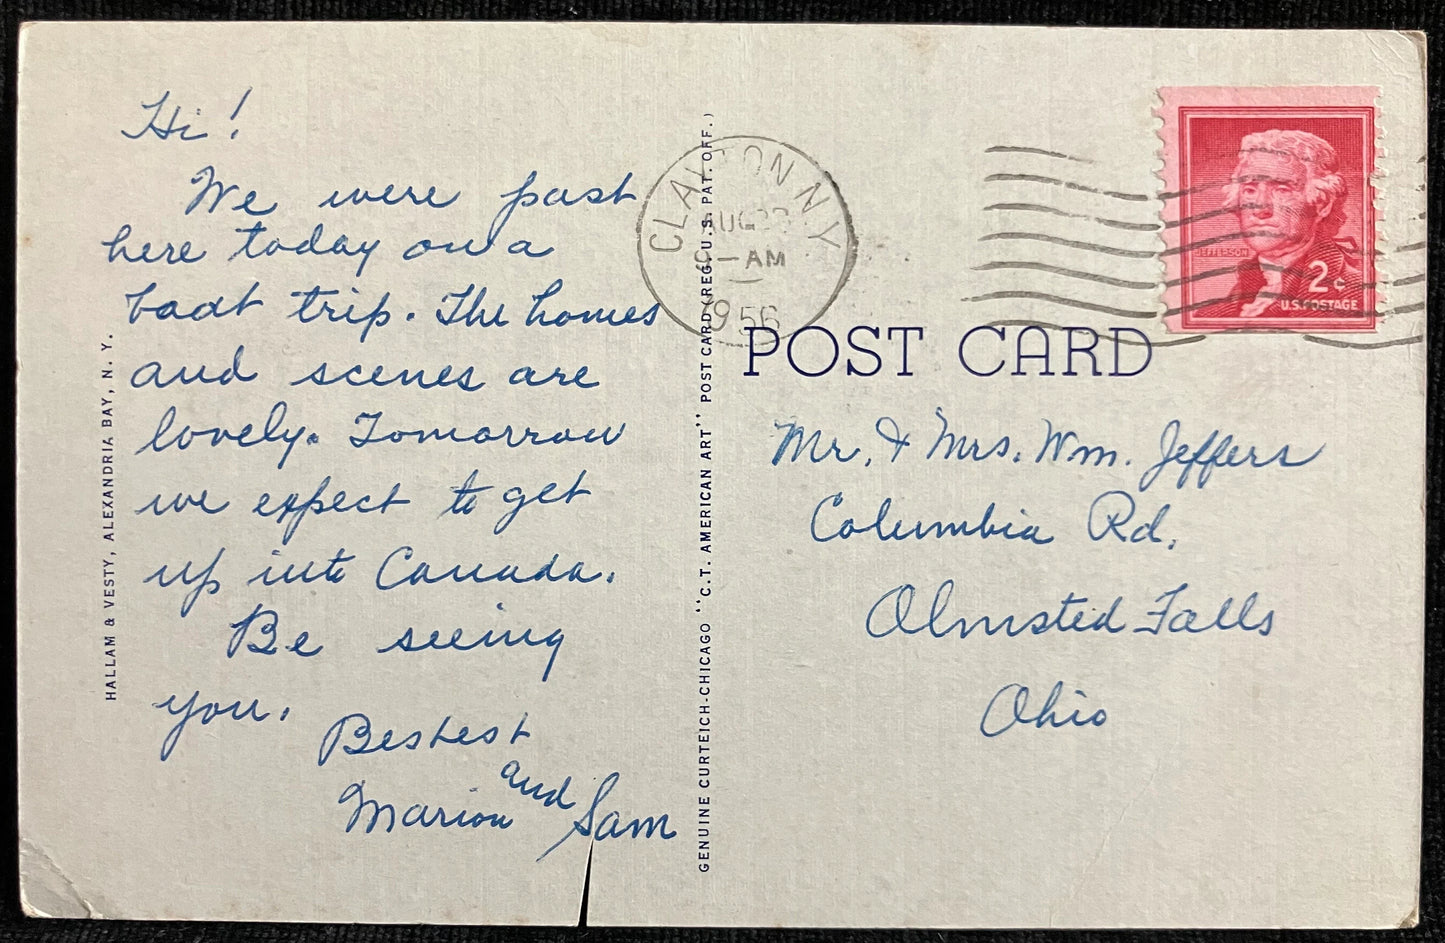 Hi!
We were past
here today on a
boat trip. The homes
and scenes are
lovely. Tomorrow
we expect to get
up into Canada.
Be seeing
you.
Bestest
Marion and Sam
HALLAM & VESTY, ALEXANDRIA BAY, N. Y.
GENUINE CURTEICH-CHICAGO "C.T. AMERICAN ART" POST CARD (REG. U.S. PAT. OFF.)
CLAYTON N.Y.
AUG
AM
1956
JEFFERSON
2¢
U.S. POSTAGE
POST CARD
Mr. & Mrs. Wm. Jeffers
Columbia Rd.
Olmsted Falls
Ohio